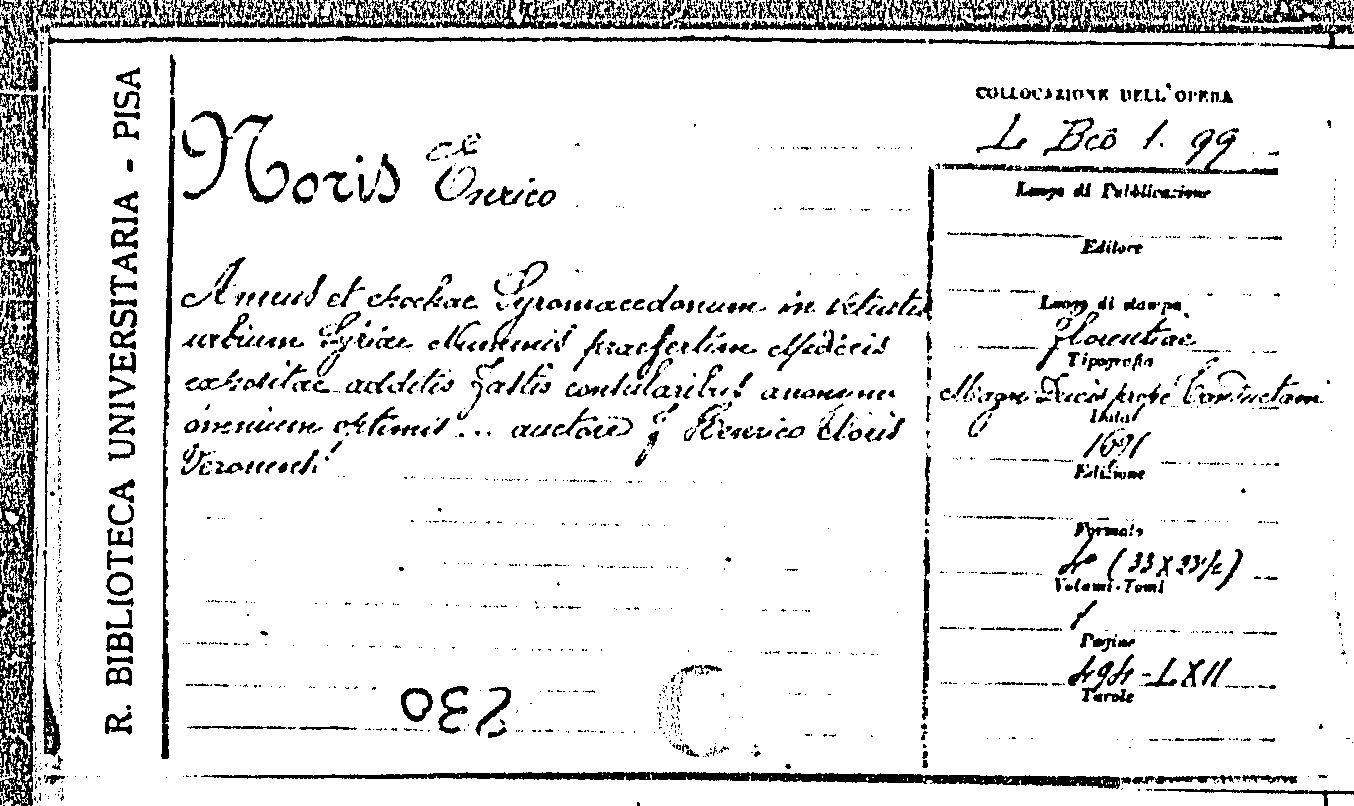 R. BIBLIOTECA UNIVERSITARIA - PISA
Noris Enrico
Annus et epochae Syromacedonum in vetustis
urbium Syriae Nummis praesertim Mediceis
expositae additis Fastis consularibus anonymi
omnium optimis ... auctore F Henrico Noris
Veronensi
230
COLLOCAZIONE DELL'OPERA
L. Bco 1. 99
Luogo di Pubblicazione
Editore
Luogo di stampa
Florentiae
Tipografia
Magni Ducis
Data
1691
Edizione
Formato
4° (33 X 23½)
Volumi-Tomi
1
Pagine
494-LXII
Tavole